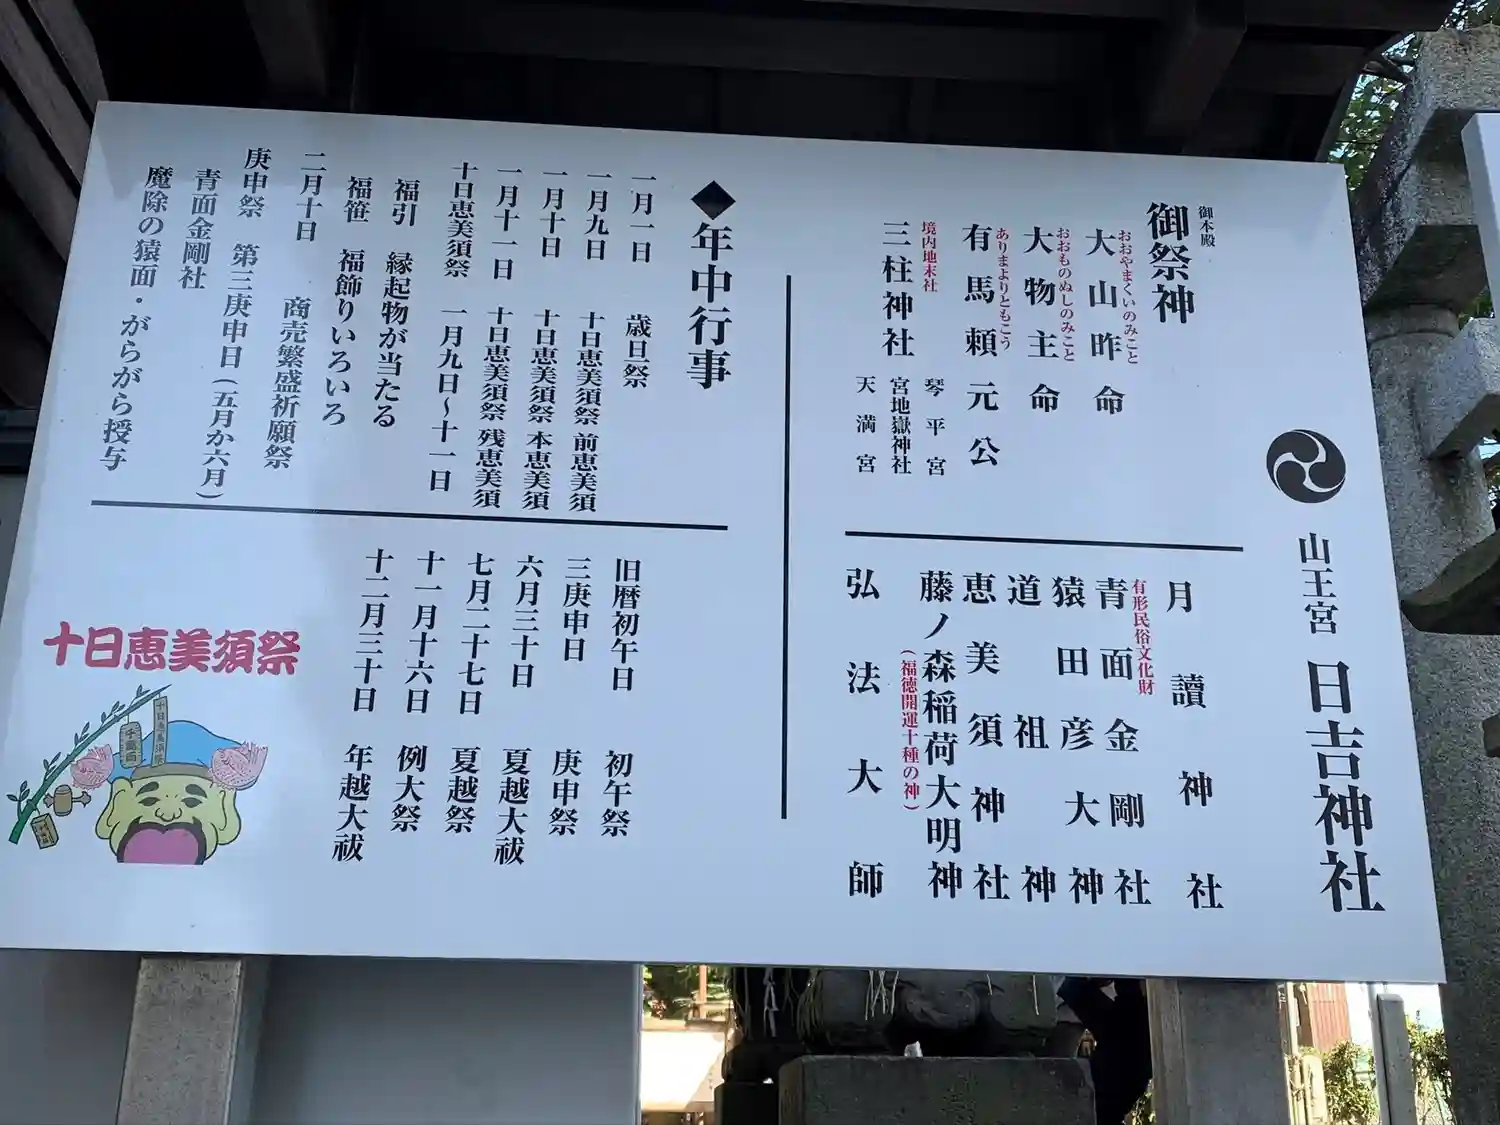 山王宮 日吉神社
御本殿
御祭神
おおやまくいのみこと
大山昨命
おおものぬしのみこと
大物主命
ありまよりともこう
有馬頼元公
境内地末社
三柱神社
琴平宮
宮地嶽神社
天満宮
月讀神社
有形民俗文化財
青面金剛社
猿田彦大神
道祖神
恵美須神社
藤ノ森稲荷大明神
(福徳開運十種の神)
弘法大師
◆年中行事
一月一日 歳旦祭
一月九日 十日恵美須祭 前恵美須
一月十日 十日恵美須祭 本恵美須
一月十一日 十日恵美須祭 残恵美須
十日恵美須祭 一月九日~十一日
福引 縁起物が当たる
福笹 福飾りいろいろ
二月十日 商売繁盛祈願祭
庚申祭 第三庚申日(五月か六月)
青面金剛社
魔除の猿面・がらがら授与
旧暦初午日 初午祭
三庚申日 庚申祭
六月三十日 夏越大祓
七月二十七日 夏越祭
十一月十六日 例大祭
十二月三十日 年越大祓
十日恵美須祭
十日恵美須祭
千両